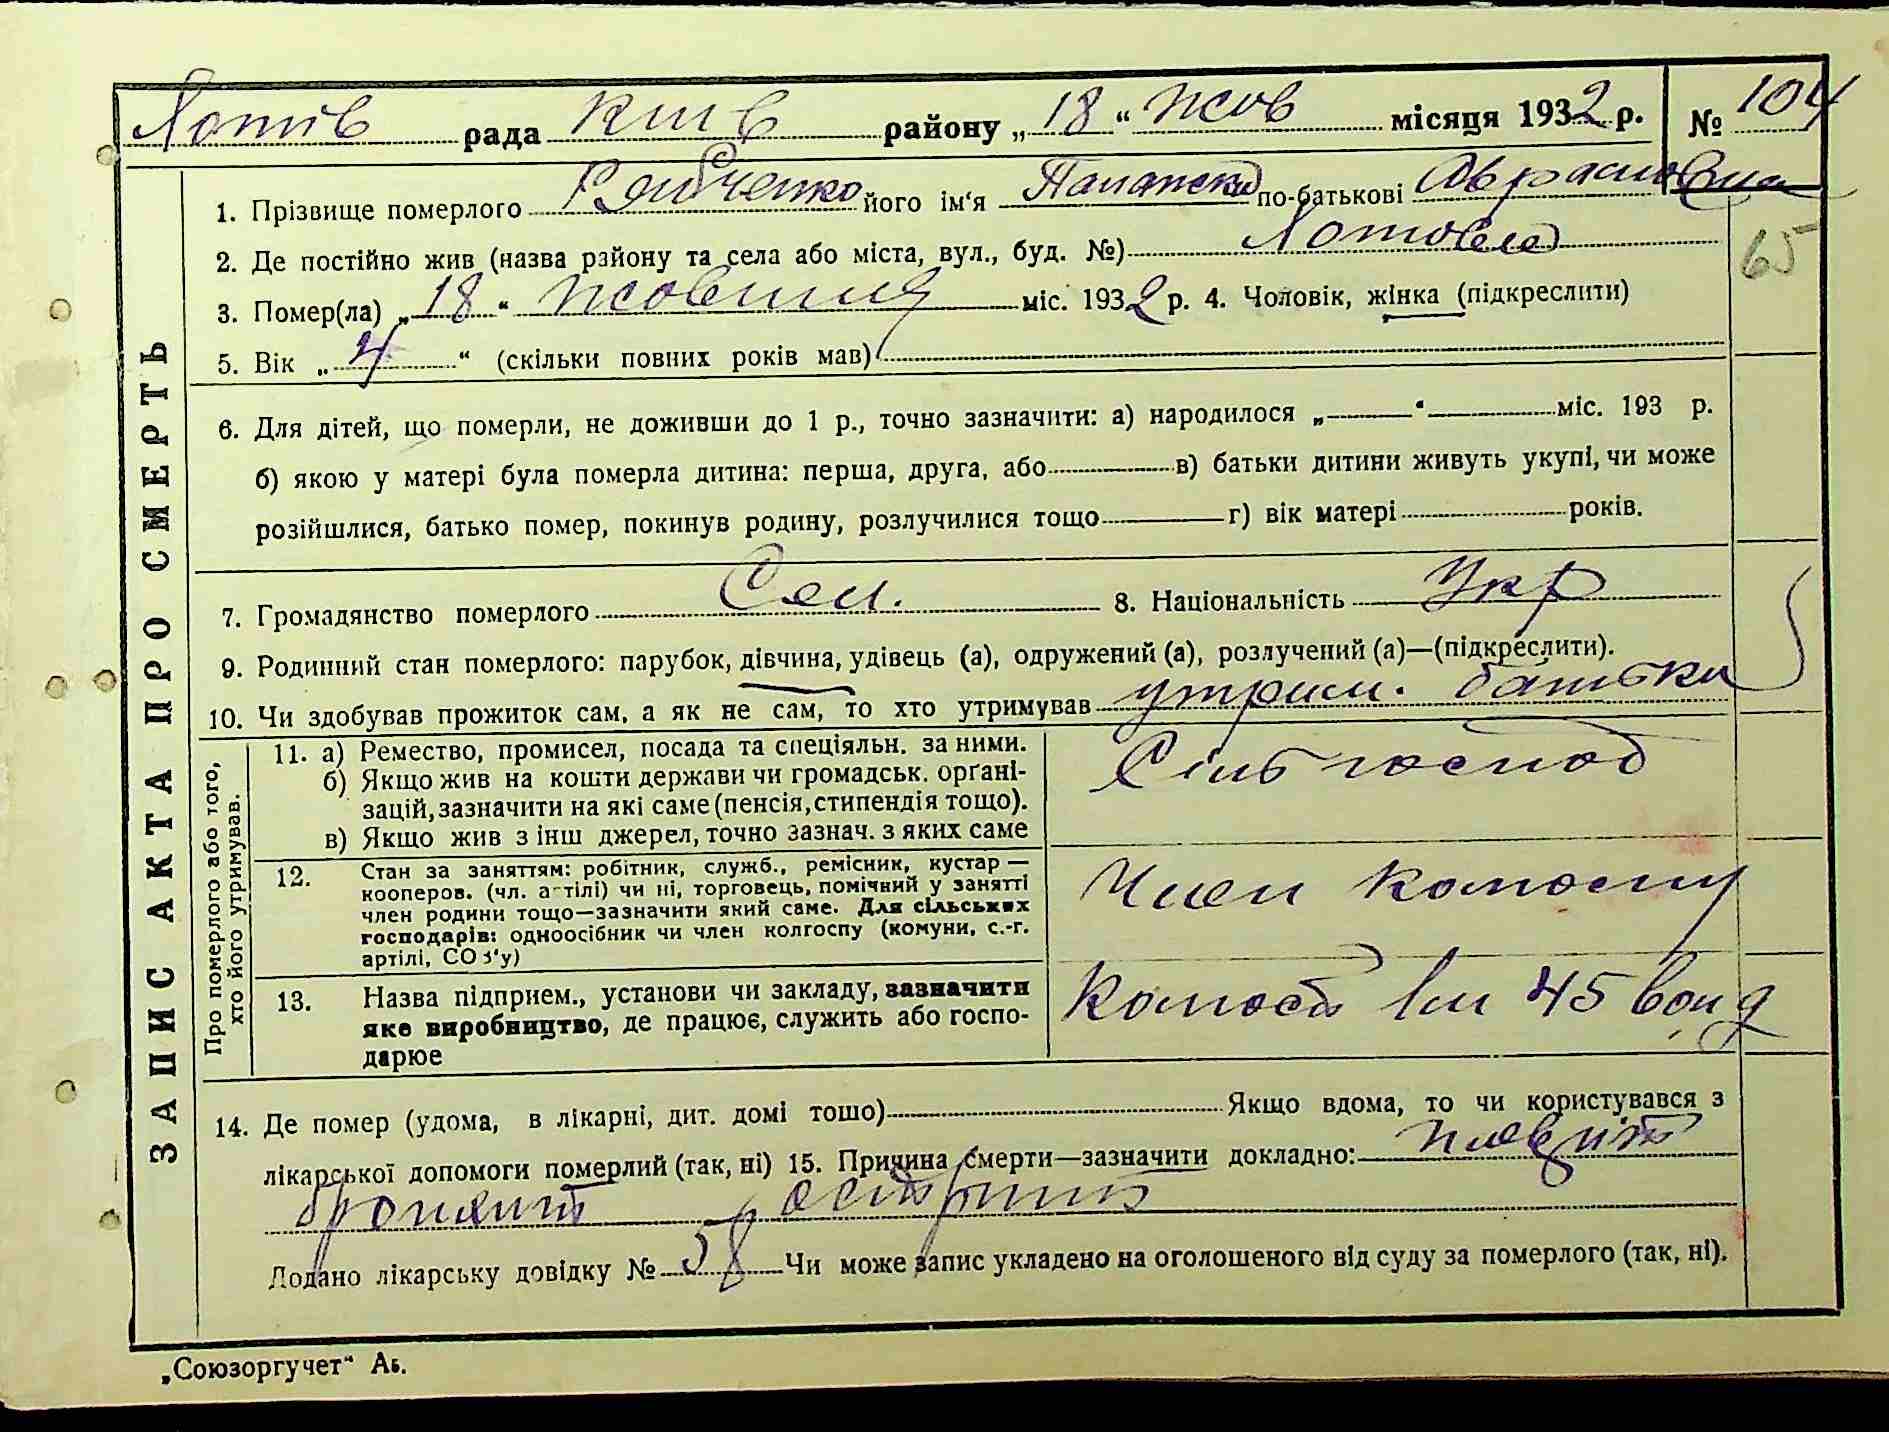 Хотів рада Київ району „18“ Жов місяця 1932 р. № 104
ЗАПИС АКТА ПРО СМЕРТЬ
1. Прізвище померлого Рябченко його ім'я по-батькові Аврамовна
2. Де постійно жив (назва району та села або міста, вул., буд. №)
65
3. Помер(ла) „18“ Жовтня міс. 1932 р. 4. Чоловік, жінка (підкреслити)
5. Вік „4“ (скільки повних років мав)
6. Для дітей, що померли, не доживши до 1 р., точно зазначити: а) народилося „ “ міс. 193 р.
б) якою у матері була померла дитина: перша, друга, або в) батьки дитини живуть укупі, чи може
розійшлися, батько помер, покинув родину, розлучилися тощо г) вік матері років.
7. Громадянство померлого Сел. 8. Національність Укр
9. Родинний стан померлого: парубок, дівчина, удівець (а), одружений (а), розлучений (а)—(підкреслити).
10. Чи здобував прожиток сам, а як не сам, то хто утримував утрим. батьки
Про померлого або того,
хто його утримував.
11. а) Ремество, промисел, посада та спеціяльн. за ними.
б) Якщо жив на кошти держави чи громадськ. органі-
зацій, зазначити на які саме (пенсія, стипендія тощо).
в) Якщо жив з інш джерел, точно зазнач. з яких саме
Сільгоспод
12. Стан за заняттям: робітник, служб., ремісник, кустар —
кооперов. (чл. артілі) чи ні, торговець, помічний у занятті
член родини тощо—зазначити який саме. Для сільських
господарів: одноосібник чи член колгоспу (комуни, с.-г.
артілі, СОЗ'у)
Член колгоспу
13. Назва підприєм., установи чи закладу, зазначити
яке виробництво, де працює, служить або госпо-
дарює
Колгосп ім 45 див
14. Де помер (удома, в лікарні, дит. домі тощо) Якщо вдома, то чи користувався з
лікарської допомоги померлий (так, ні) 15. Причина смерти—зазначити докладно: плеврит
бронхит острый
Додано лікарську довідку № 38 Чи може запис укладено на оголошеного від суду за померлого (так, ні).
„Союзоргучет“ Аб.